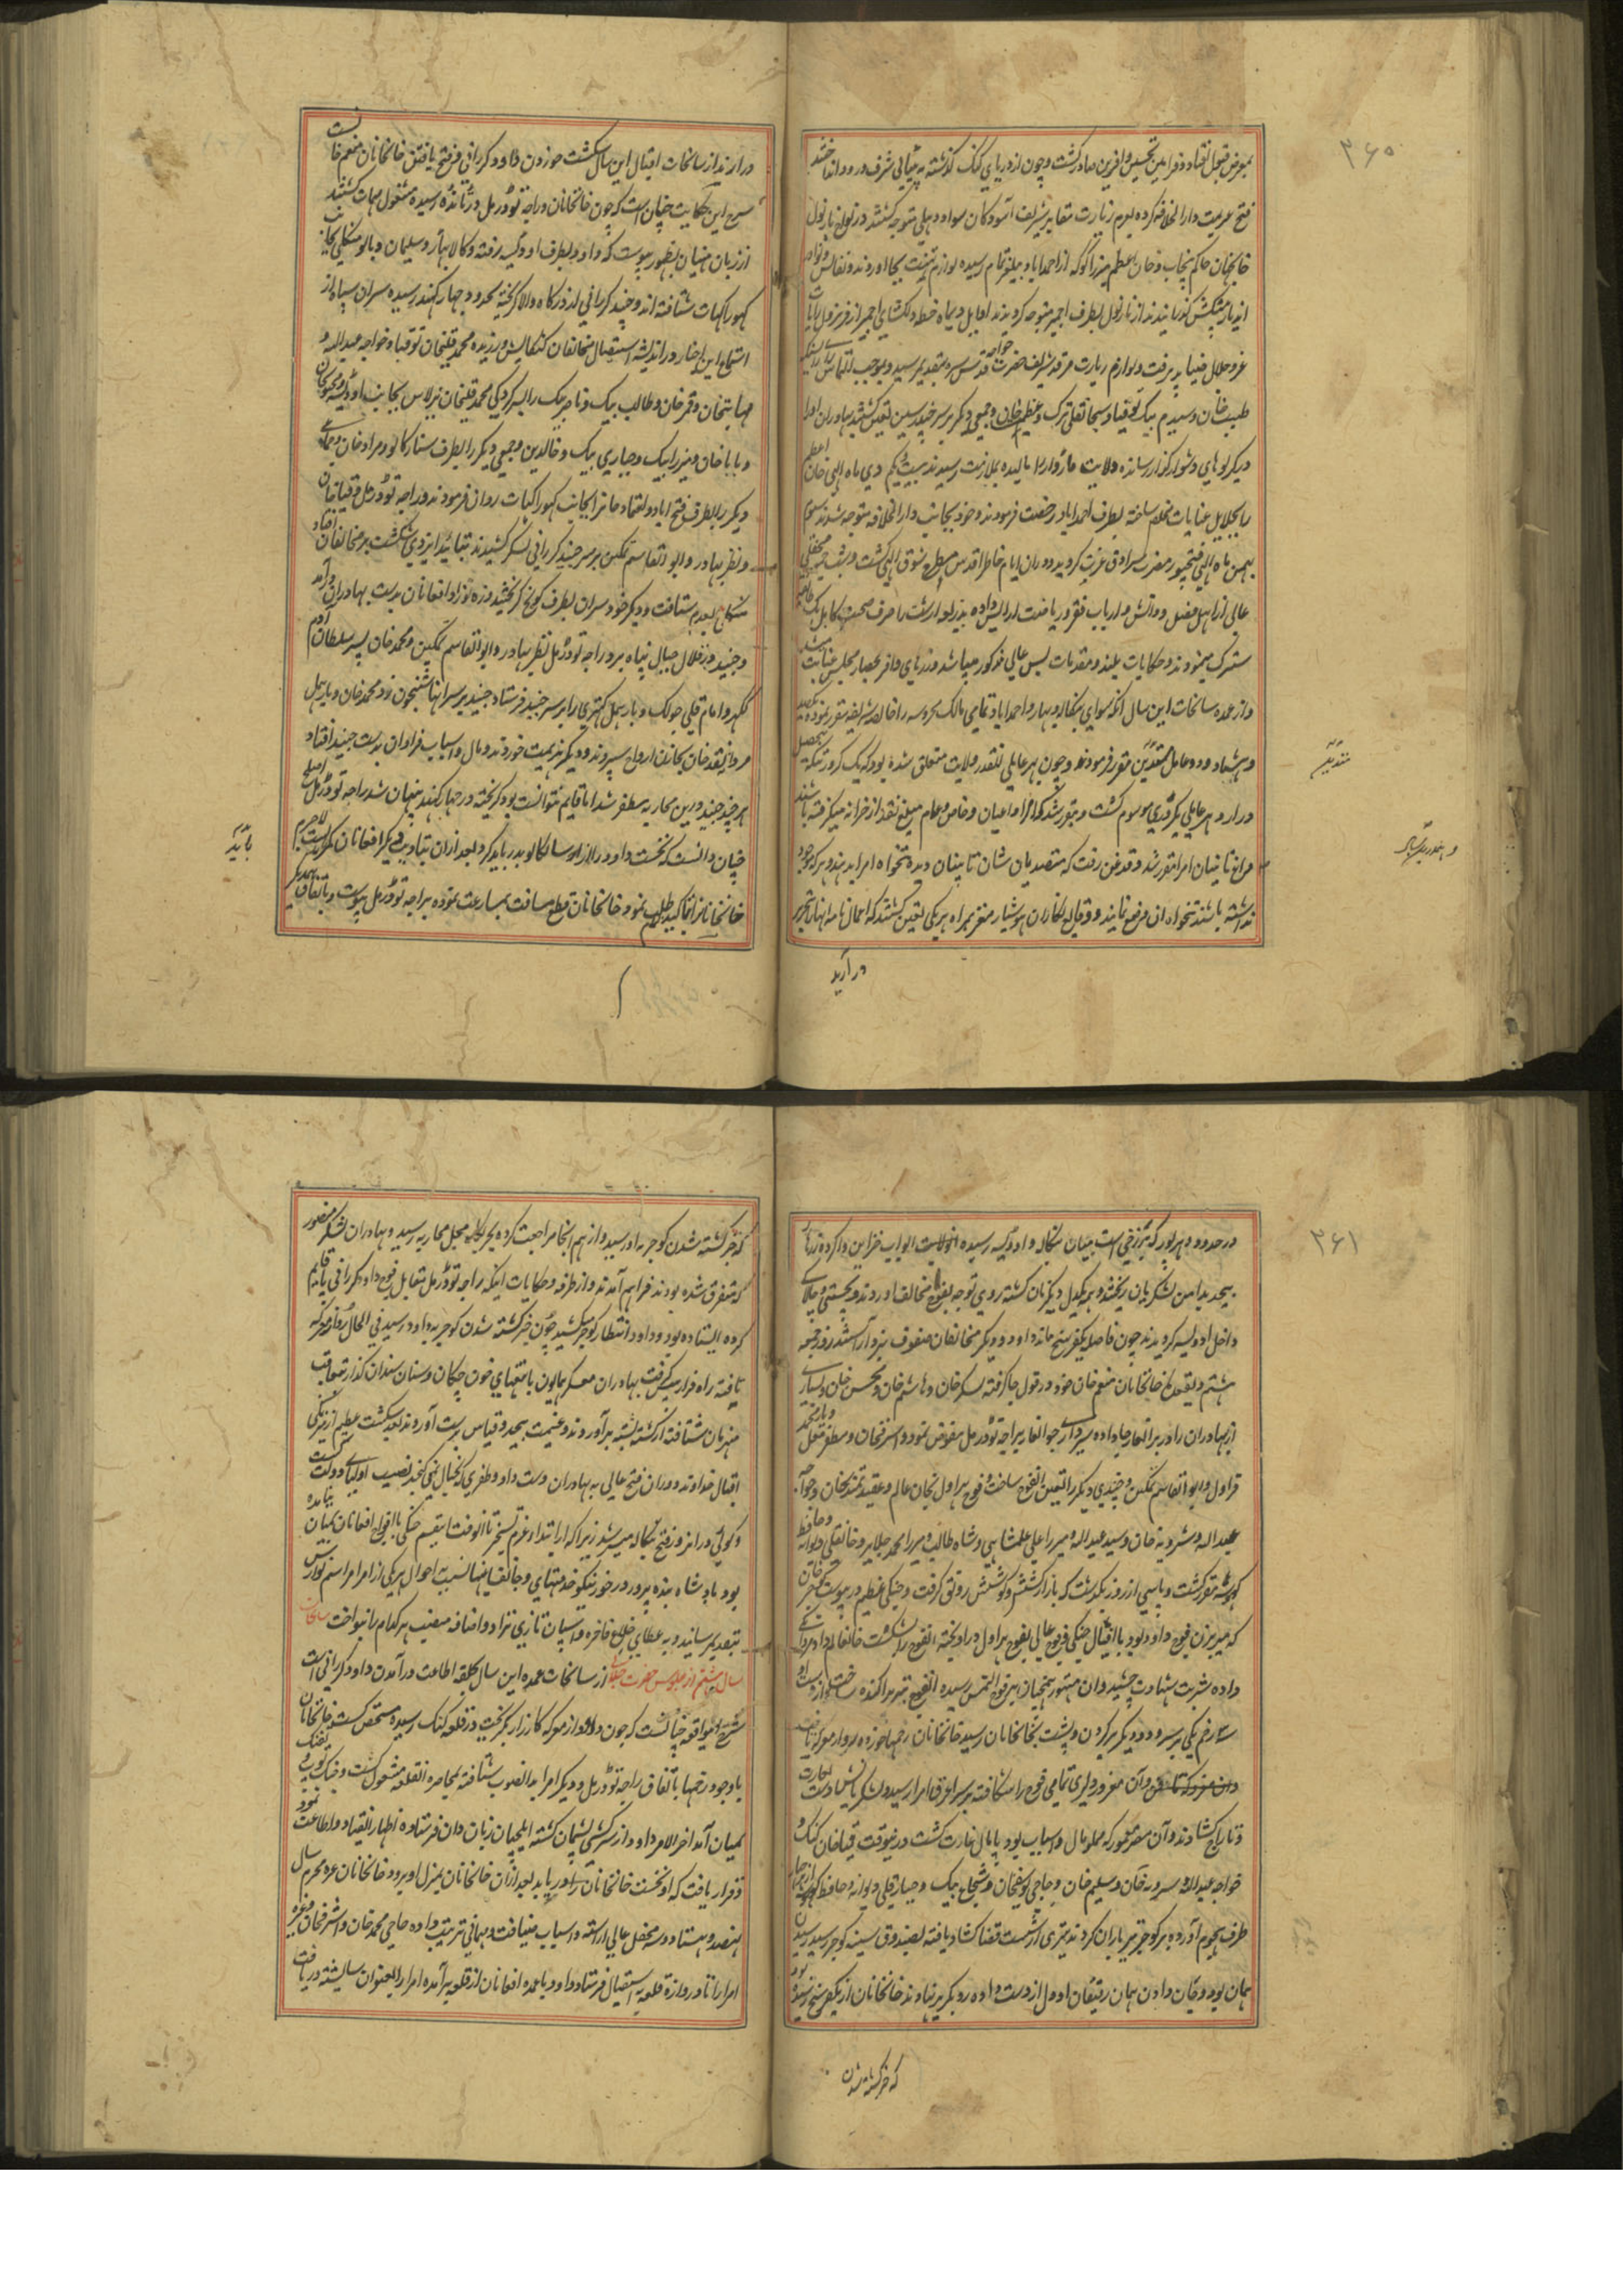 ۳۶۰
بمعرض قبول افتاد و فرامین تحسین و افرین صادر کشت و چون از دریای کنک کذشته به پتیالی شرف ورود
فتح عزیمت دارالخلافه کرده بعزم زیارت مقابر شریف آسودکان سواد دهلی متوجه کشتند در نواح نارنول
خانجهان حاکم پنجاب و خان اعظم میرزا کوکه از احمداباد بیلغر تمام رسیده لوازم تهنیت بجا اوردند و نفایس و نوادر
اندیار پیشکش کذرانیدند از نارنول بطرف اجمیر متوجه کردیدند اوایل دیماه خطه دلکشای اجمیر از فر نزول رایات
عز و جلال ضیا پذیرفت و لوازم زیارت مرقد شریف حضرت خواجه قدس سره بتقدیم رسید و بموجب التماس
طیب خان و سید بیک توقبای و سبحانقلی ترک و عظیم خان و جمعی دیکر بر سر چندرسین تعین کشتند بهادران اورا
در کریوهای دشوار کذار رسانده ولایت ماروار را مالیده بملازمت رسیدند بیست و یکم دی ماه الهی خان اعظم
را بجلایل عنایات مخلع ساخته بطرف احمداباد رخصت فرمودند و خود بجانب دارالخلافه متوجه شدند سوم
بهمن ماه الهی فتحپور مضرب سرادق عزت کردید و دران ایام خاطر اقدس مطرح شوق الهی کشت و بشب جمعه محفلی
عالی از اهل فضل و دانش و ارباب فقر و ریاضت ارایش داده
سترک مینمودند و حکایات بلند و مقدمات بس عالی مذکور میشد و زرهای وافر بحضار مجلس عنایت میشد
و از عمده سانحات این سال انکه سوای بنکاله و بهار و احمداباد تمامی ممالک محروسه را خالصه شریفه مقرر نموده یکصد
و هشتاد و دو عامل متدین مقرر فرمودند و چون بهر عاملی انقدر ولایت متعلق شده بود که یک کرور تنکه محصل
دارد و هر عاملی بکروری موسوم کشت و مقرر شد که امرا و اعیان و خاص و عام مبلغ نقد از خزانه میکرفته باشند
و داغ تابینان امرا مقرر شد و قدغن رفت که متصدیان شان تابینان دیده تنخواه امرا بدهند و هر که موجود
نداشته باشند تنخواه ان وضع نمایند و وقایع نکاران هوشیار مغز همراه هر یکی تعین کشتند که اعمال نامه انها بتحریر
در آرید
متدین
درارند از سانحات اقبال این سال شکست خوردن داود کررانی و فتح یافتن خانخانان منعم خان
شرح این حکایت چنان است که چون خانخانان و راجه تودرمل در تانده رسیده مشغول مهمات کشتند
از زبان منهیان بظهور پیوست که داود بطرف اودیسه رفته و کالا پهار و سلیمان و بابو منکلی بجانب
کهوراکهات شتافته اند و جنید کررانی از درکاه والا کریخته بحدود جهارکهند رسیده سران سپاه از
استماع این اخبار در اندیشه استیصال مخالفان کنکایش ورزیده محمد قلیخان توقبای و خواجه عبدالله و
مهابتخان و قمر خان و طالب بیک و ناصر بیک را بسرکردکی محمد قلیخان برلاس بجانب اودیسه و مجنون خان
و بابا خان و میرزا بیک و جباری بیک و خالدین و جمعی دیکر را بطرف ستارکانو و مراد خان و جماعه
دیکر را بطرف فتح اباد و اعتماد خانرا بجانب کهوراکهات روان فرمودند و راجه تودرمل و قیاخان
و نظر بهادر و ابوالقاسم نمکین بر سر جنید کررانی لشکر کشیدند بتایید ایزدی شکست بر مخالفان افتاد
منکلی بعدم شتافت و دیکر خود سران بطرف کوچ کریختند و زه و زاد افغانان بدست بهادران درآمد
و جنید در خلال جبال پناه برد راجه تودرمل نظر بهادر و ابوالقاسم نمکین و محمد خان پسر سلطان آدم
ککهر و امام قلی چولک و باربهمل کهتری را بر سر جنید فرستاد جنید بر سر انها شبخون زد محمد خان و باربهمل
مردانه نقد جان بخازن ارواح سپردند و دیکر هزیمت خوردند و مال و اسباب فراوان بدست جنید افتاد
هر چند جنید درین محاربه مظفر شد اما قایم نتوانست بود کریخته در جهارکهند پنهان شد راجه تودرمل اصلح
چنان دانست که نخست داود را از اودیسا لکالو بدر باید کرد و بعد ازان بتادیب دیکر افغانان کمر بست لاجرم
خانخانانرا بتاکید طلب نمود خانخانان قطع مسافت بسارعت نموده براجه تودرمل پیوست و باتفاق یکدیکر
باید
۳۶۱
در حدود دهرپور که برزخی است میان بنکاله و اودیسه رسیده انولایت ابواب خزاین وا کرده زرهای
بیحد بدامن لشکریان ریختند و همه یکدل و یکزبان کشته روی توجه بفوج مخالف اوردند و بچستی و چالاکی
داخل اودیسه کردیدند چون فاصله یکفرسخ ماند داود و دیکر مخالفان صفوف نبرد آراستند روز جمعه
هشتم ذیقعده خانخانان منعم خان خود در قول جا کرفته لشکر خان و هاشم خان و محسن خان و بسیاری
از بهادران را در برانغار جا داده سرداری جوانغار براجه تودرمل مفوض نمود و اشرفخان و مظفر مغل و یار محمد
قراول و ابوالقاسم نمکین و چندی دیکر را التمش انفوج ساخت و فوج هراول بخان عالم و عقیدتمند خان و خواجه
عبدالله و شرویه خان و سید عبدالله و میرزا علی علمشاهی و شاه طالب و میرزا محمد جلایر و خانقلی دیوانه و حافظ
کوسه مقرر کشت و پاسی از روز بکذشت که بازار کشش و کوشش رونق کرفت و جنکی عظیم درپیوست کوجر خان
که میربزن فوج داود بود با افیال جنکی و فوج عالی بفوج هراول دراویخته انفوج را شکست خانعالم داد مردانکی
داده شربت شهادت چشید و ان متهور همچنان بر فوج التمش رسیده انفوج نیز پراکنده ساخت و از دست او
سه زخم یکی بر سر و دو دیکر بر کردن و پشت بخانخانان رسید خانخانان زخمها خورده
و آن مغرور دلیری تمامی فوج را شکافته بر سر اعرق امرا رسید و لشکریانش دست بغارت
و تاراج کشادند و آن مصر معمور که مملو مال و اسباب بود پایمال غارت کشت در نیوقت قیاخان کنک و
خواجه عبدالله و سرویه خان و سلیم خان و حاجی یوسفخان و شجاع بیک و جبار قلی دیوانه و حافظ
طرف هجوم آورده بر کوجر تیر باران کردند تیری از شست قضا کشاد یافته بصندوق سینه کوجر رسید رسیدن
همان بود و جان دادن همان رفیقان او دل از دست داده رو بکریز نهادند خانخانان از یکفرسخ
که خبر کشته شدن
که خبر کشته شدن کوجر به او رسید و از هم انجا مراجعت کرده بجرکه محل محاربه رسید و بهادران لشکر منصور
که متفرق شده بودند فراهم آمدند و از طرفه حکایات اینکه راجه تودرمل مقابل فوج داود کررانی پا قایم
کرده ایستاده بود و داود انتظار کوجر میکشید چون خبر کشته شدن کوجر به داود رسید فی الحال رو از معرکه
تافته راه فرار پیش کرفت بهادران معسکر همایون با تیغهای خون چکان و سنان سندان کذار بتعاقب
منهزمان شتافته از کشته پشته برآوردند و غنیمت بیحد و قیاس بدست آوردند بعد شکست عظیم از نیرنکی
اقبال خداوند دوران فتح عالی به بهادران دست داد و ظفری که بخیال نمی کنجد نصیب اولیای دولت کشت
و کویی در امروز فتح بنکاله میسر شد زیرا که از ابتدا عزم تسخیر تا انوقت اینقسم جنکی با افواج افغانان بمیان نیامده
بود بادشاه بنده پرور در خور نیکو خدمتهای و جانفشانیها نسبت به احوال هر یکی از امرا مراسم نوازش
بتقدیم رسانید و به عطای خلاع فاخره و اسپان تازی نژاد و اضافه منصب هر کدام را نواخت سانحات
سال بیستم از جلوس حضرت جلال از سانحات عمده این سال بحلقه اطاعت درآمدن داود کررانی است
شرح اینواقعه چنانست که چون داود از معرکه کارزار بکریخت در قلعه کتک رسیده متحصن کشت خانخانان
با وجود زخمها باتفاق راجه تودرمل و دیکر امرا بدانصوب شتافته بمحاصره انقلعه مشغول کشت و جنک توپ و تفنک
بمیان آمد اخر الامر داود از سرکشی پشیمان کشته ایلچیان زبان دان فرستاده اظهار انقیاد و اطاعت نمود
و قرار یافت که او نخست خانخانان را دریابد بعد ازان خانخانان بمنزل او برود خانخانان غره محرم سال
نهصد و هشتاد و سه محفل عالی اراسته و اسباب ضیافت و مهمانی ترتیب داده حاجی محمد خان و اشرفخان و غیره
امرا را تا دروازه قلعه به استقبال فرستاد داود با عمده افغانان از قلعه برآمده امرا را بعنوان شایسته دریافت